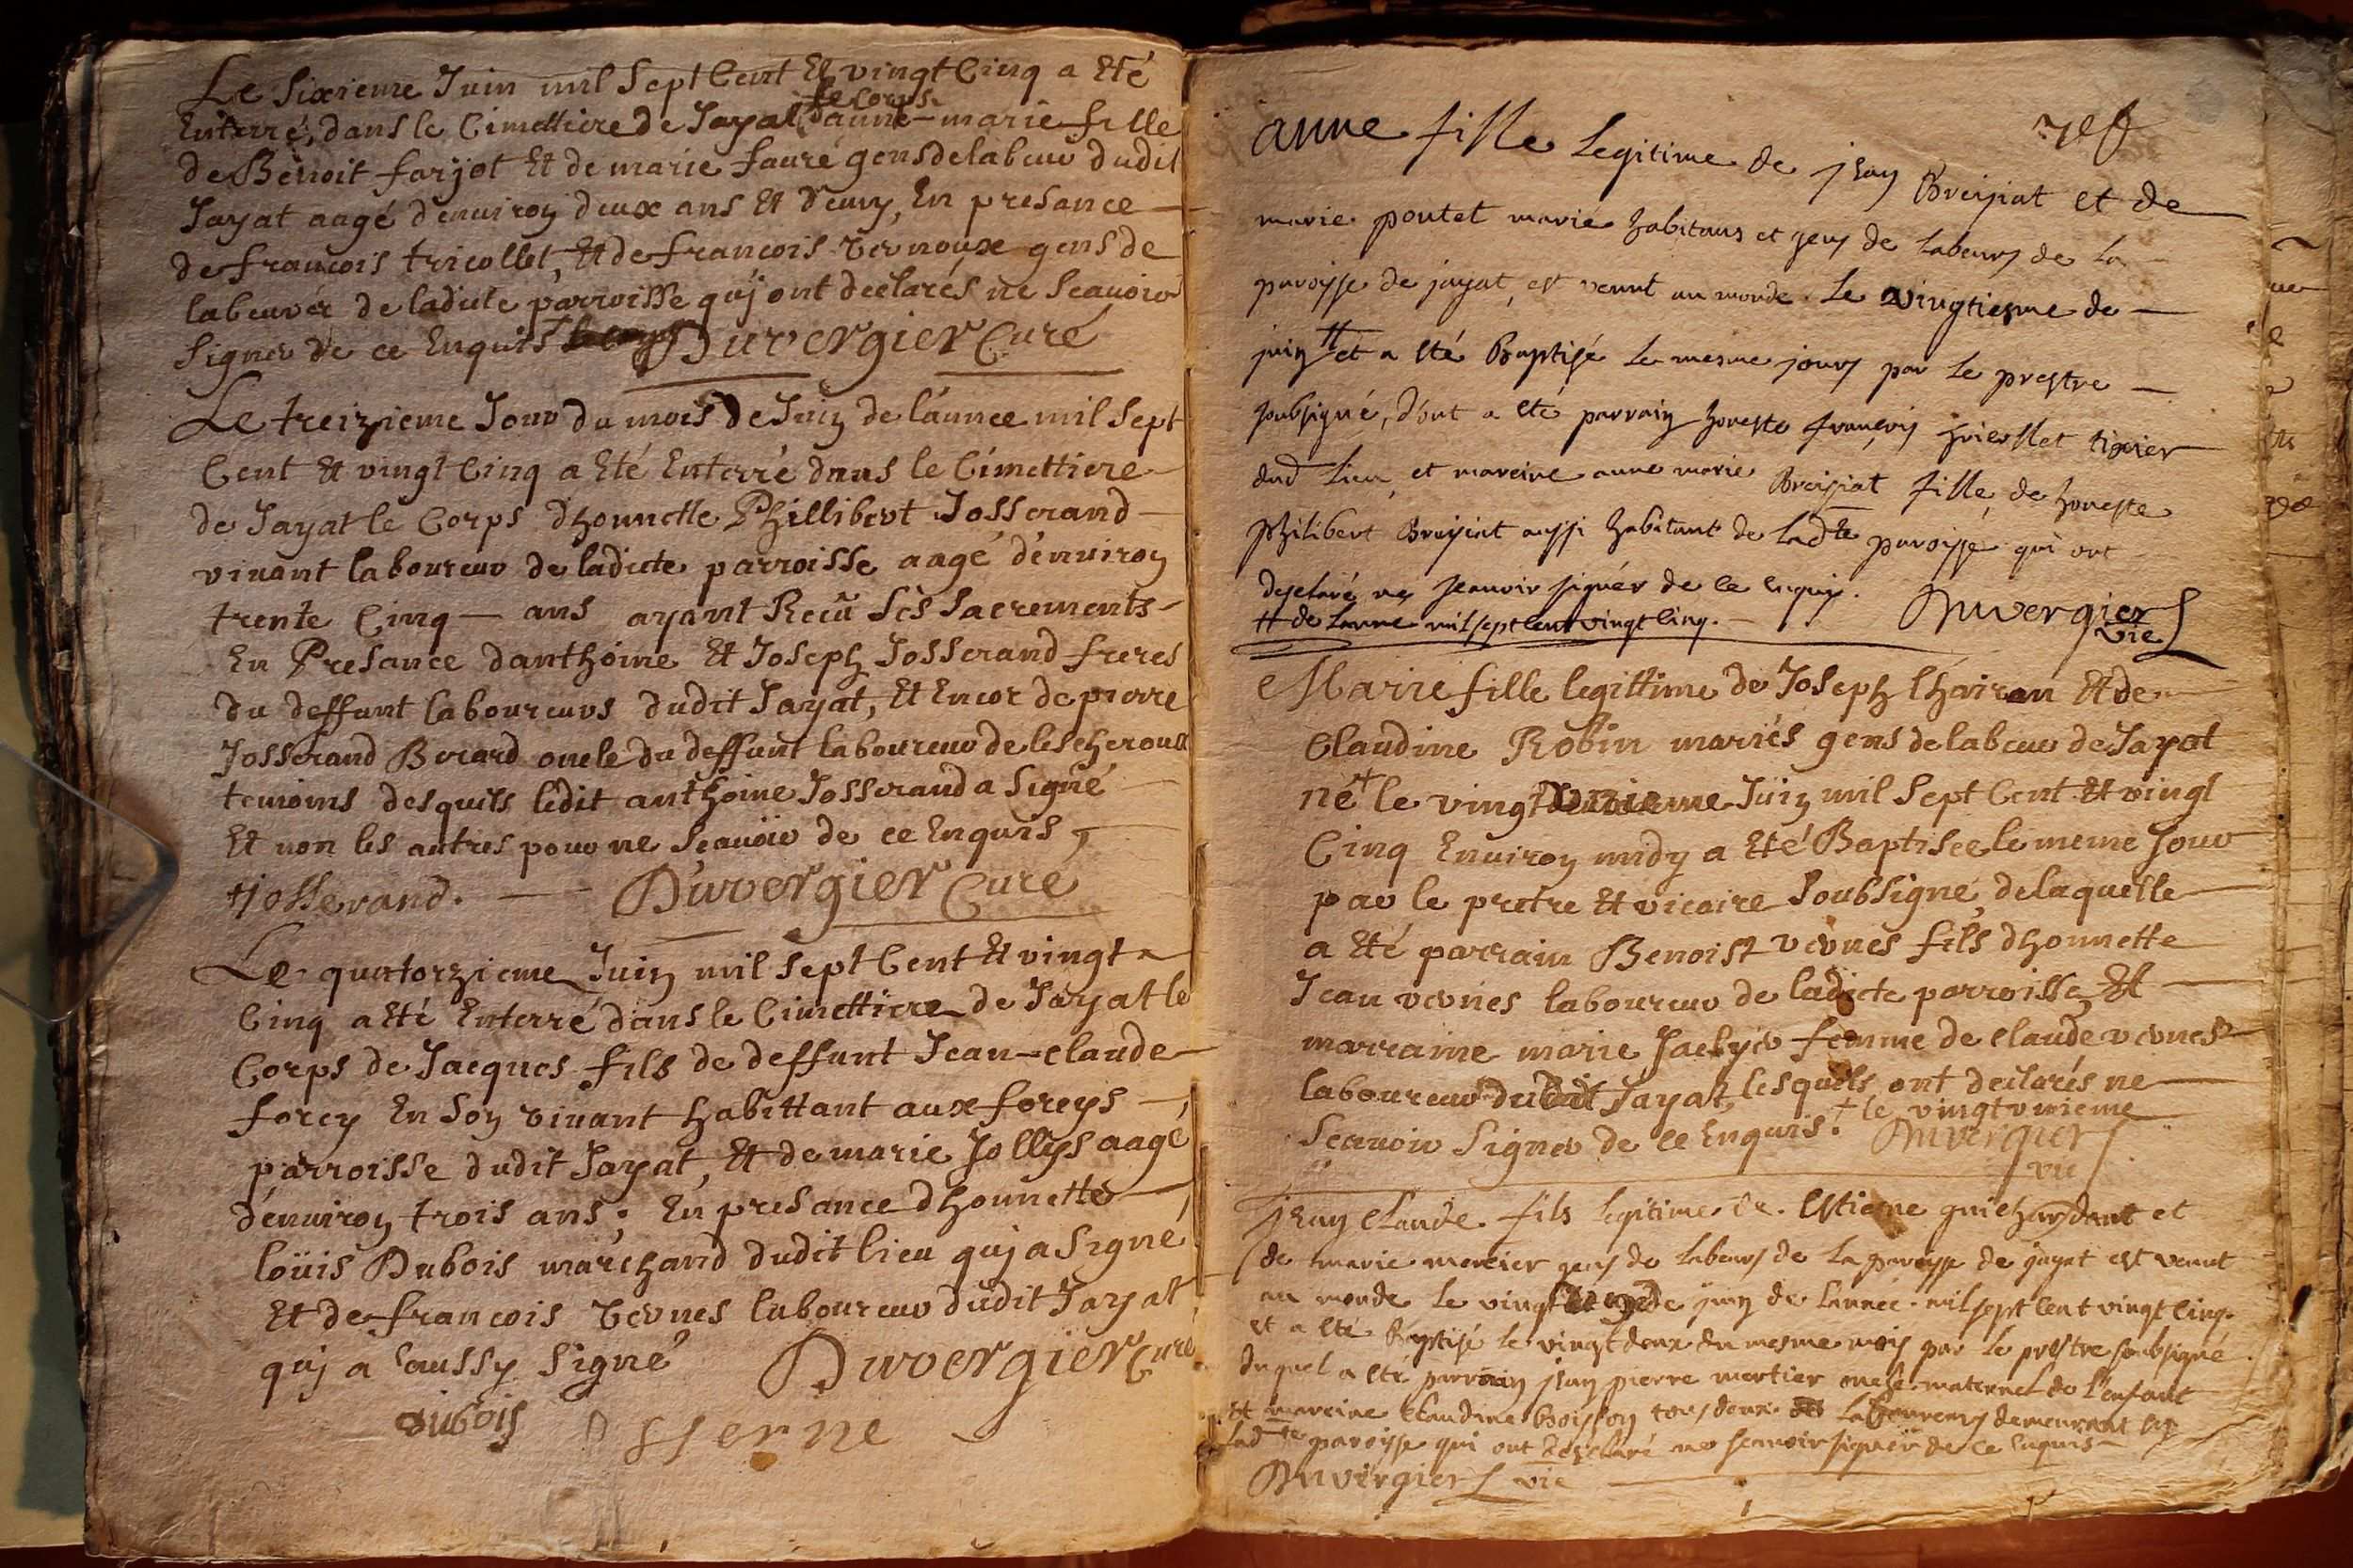 Le Sixieme Juin mil Sept Cent Et vingt Cinq a Eté
le corps
Enterré, dans le Cimettiere de Jayat d'anne-marie fille
de Benoit farjot Et de marie fauré gens de labeur dudit
Jayat aagé d'enuiron deux ans Et demy, En presance
de francois tricollet, Et de francois vernoux gens de
labeuvér de ladicte parroisse quj ont declarés ne Scauoir
Signer de ce Enquis Duvergier Curé
Le treizieme Jour du mois de Juin de lánnee mil Sept
Cent Et vingt Cinq a Eté Enterré dans le Cimettiere
de Jayat le Corps dhonnette Phillibert Josserand
viuant laboureur de ladicte parroisse aagé dénuiron
trente Cinq — ans ayant Recu Sés Sacrements
En Presance danthoine Et Joseph Josserand freres
du deffunt laboureurs dudit Jayat, Et Encor de pierre
Josserand Berard oncle du deffunt laboureur de lescheroux
temoins desquels ledit anthoine Josserand a Signé
Et non les autres pour ne Scauoir de ce Enquis,
tjosserand. — Duvergier Curé
Le quatorzieme Juin mil Sept Cent Et vingt
Cinq a Eté Enterré dans le Cimettiere de Jayat le
Corps de Jacques fils de deffunt Jean-claude
forey En Son viuant habittant aux foreys
parroisse dudit Jayat, Et de marie Jollys aagé
dénuiron trois ans. En presance dhonnette
loüis Dubois marchand dudit lieu quj a Signé
Et de francois vernes laboureur dudit Jayat
quj a aussy Signé Duvergier Curé
dubois
anne fille legitime de jean Breysiat et de
marie pontet marié habitans et gens de labeurs de la
paroisse de jayat, est venut au monde le vingtiesme de
juin # et a eté Baptisé le mesme jours par le prestre
soubsigné, dont a eté parrain honeste françois tixier
dud lieu, et mareine anne marie Breisiat fille de honeste
philibert Breysiat aussi habitant de ladte paroisse qui ont
desclaré ne scauoir signér de ce enquis. Duvergier
vic
# de lanne mil sept cent vingt cinq.
Marie fille legittime de Joseph Chairan Et de
Claudine Robin mariés gens de labeur de Jayat
né + le vingt Juin mil Sept Cent Et vingt
Cinq Enuiron midy a Eté Baptisee le meme Jour
par le pretre Et vicaire Soubsigné, de laquelle
a Eté parrain Benoist vernes fils dhonnette
Jean vernes laboureur de ladicte parroisse Et
marraine marie femme de claude vernes
laboureur dudit Jayat, lesquels ont declarés ne
Scauoir Signer de ce Enquis. + le vingt unieme
Duvergier
vic
jean claude fils legitime de Estienne guichardant et
de marie mercier gens de labeurs de la paroisse de jayat est venut
au monde le vingt de juin de lannée mil sept cent vingt cinq.
et a eté Baptisé le vingt deux du mesme mois par le prestre soubsigné
duquel a eté parrain jean pierre mertier oncle maternel de l'enfant
et mareine claudine boisson tous deux laboureurs demeurant
ladte paroisse qui ont desclaré ne scauoir signer de ce enquis
Duvergier vic